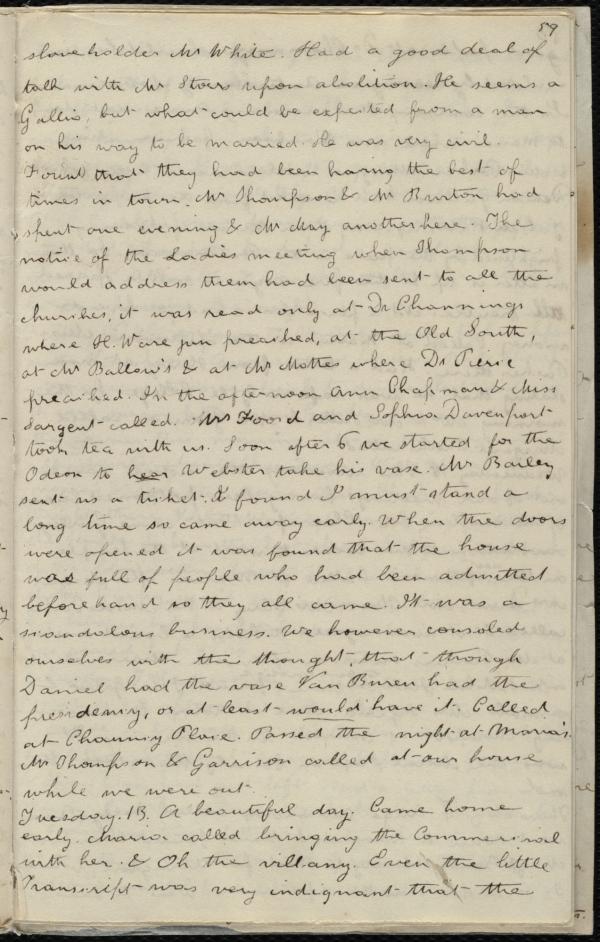 59
slaveholder Mr White. Had a good deal of
talk with Mr Stoers upon abolition. He seems a
Gallio, but what could be expected from a man
on his way to be married. He was very civil.
Found that they had been having the best of
times in town. Mr Thompson & Mr Burton had
spent one evening & Mr May another here. The
notice of the Ladies meeting when Thompson
would address them had been sent to all the
churches, it was read only at Dr Channings
where H. Ware jun preached, at the Old South,
at Mr Ballou's & at Mr Mottes where Dr Pierce
preached. In the afternoon Ann Chapman & Miss
Sargent called. Mrs Foord and Sophia Davenport
took tea with us. Soon after 6 we started for the
Odeon to hear Webster take his vase. Mr Bailey
sent us a ticket. I found I must stand a
long time so came away early. When the doors
were opened it was found that the house
was full of people who had been admitted
beforehand so they all came. It was a
scandalous business. We however consoled
ourselves with the thought, that though
Daniel had the vase Van Buren had the
presidency, or at least would have it. Called
at Chauncy Place. Passed the night at Maria's.
Mr Thompson & Garrison called at our house
while we were out.
Tuesday. 13. A beautiful day. Came home
early. Maria called bringing the Commercial
with her. & Oh the villany. Even the little
Transcript was very indignant that the